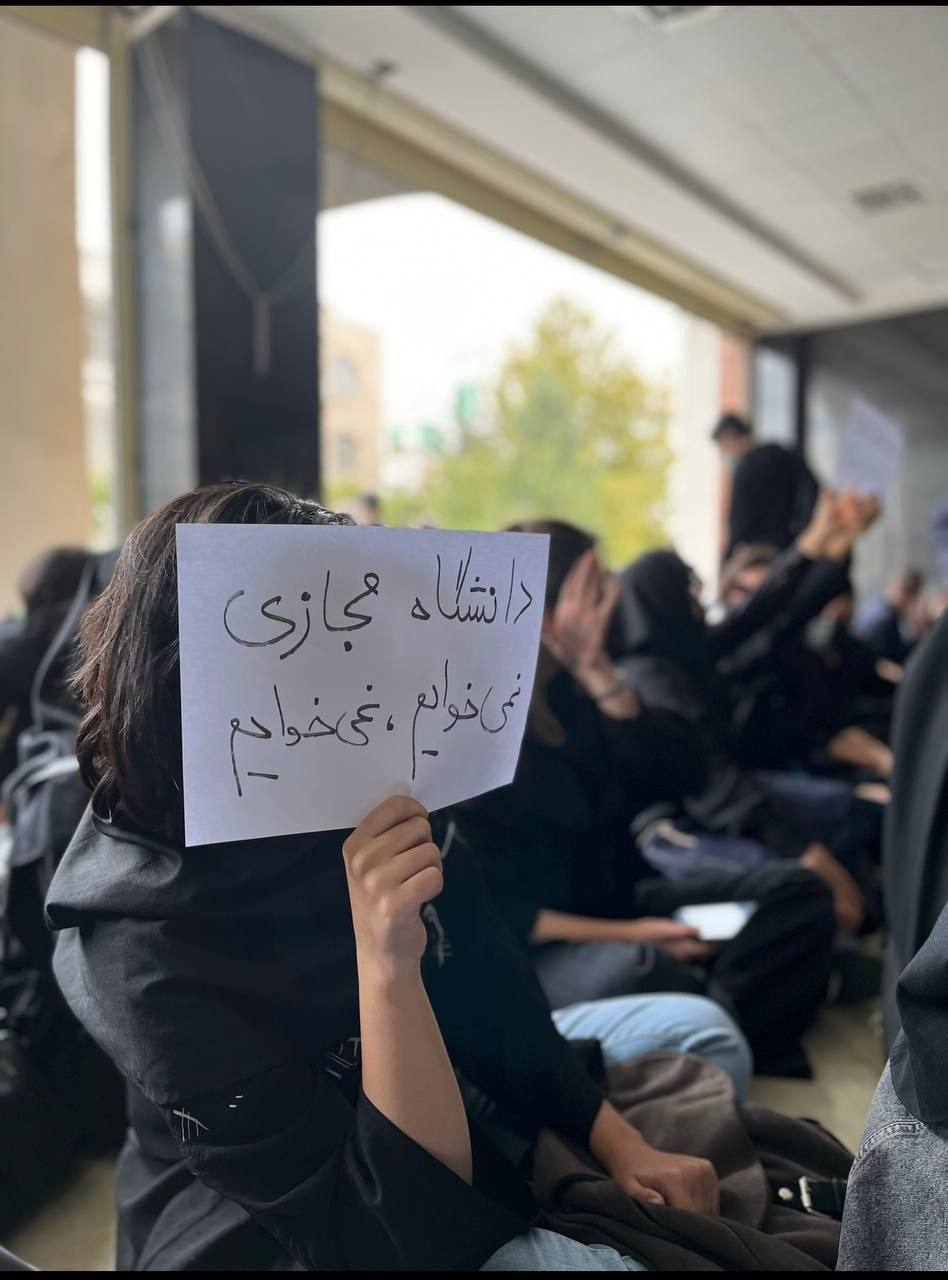 دانشگاه مجازی
نمی‌خوایم ، نمی‌خوایم